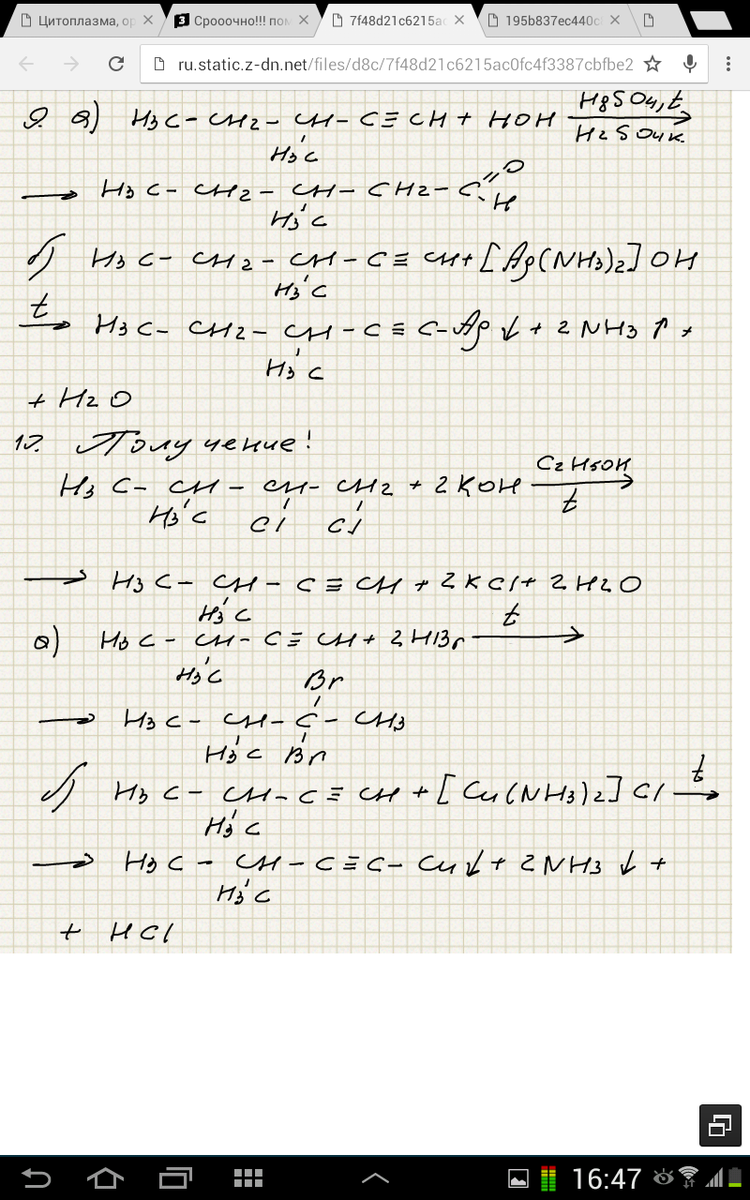 Цитоплазма, ор
Срооочно!!! пом
7f48d21c6215ac
195b837ec440c
ru.static.z-dn.net/files/d8c/7f48d21c6215ac0fc4f3387cbfbe2
9. а) H3C - CH2 - CH - C ≡ CH + HOH HgSO4, t
H3C H2SO4 к.
→ H3C - CH2 - CH - CH2 - C =O -H
H3C
б) H3C - CH2 - CH - C ≡ CH + [Ag(NH3)2]OH
H3C
t → H3C - CH2 - CH - C ≡ C - Ag↓ + 2NH3↑ +
H3C
+ H2O
10. Получение!
H3C - CH - CH - CH2 + 2KOH C2H5OH → t
H3C Cl Cl
→ H3C - CH - C ≡ CH + 2KCl + 2H2O
H3C
а) H3C - CH - C ≡ CH + 2HBr t →
H3C
Br
→ H3C - CH - C - CH3
H3C Br
б) H3C - CH - C ≡ CH + [Cu(NH3)2]Cl t →
H3C
→ H3C - CH - C ≡ C - Cu↓ + 2NH3↓ +
H3C
+ HCl
16:47